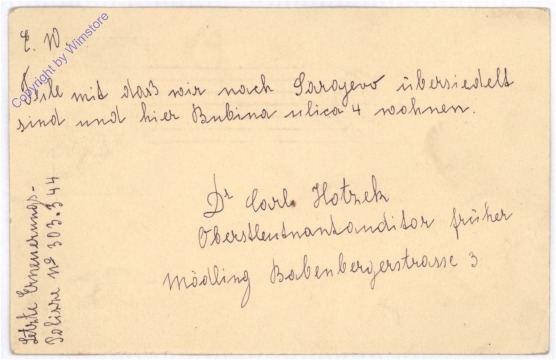 E. W.
Teile mit daß wir nach Sarajevo übersiedelt
sind und hier Bubina ulica 4 wohnen.
Dr Carl Hotzek
Oberstleutnantauditor früher
Mödling Babenbergerstrasse 3
Letzte Erneuerungs-
Polizze No 303.344
Copyright by Wimstore